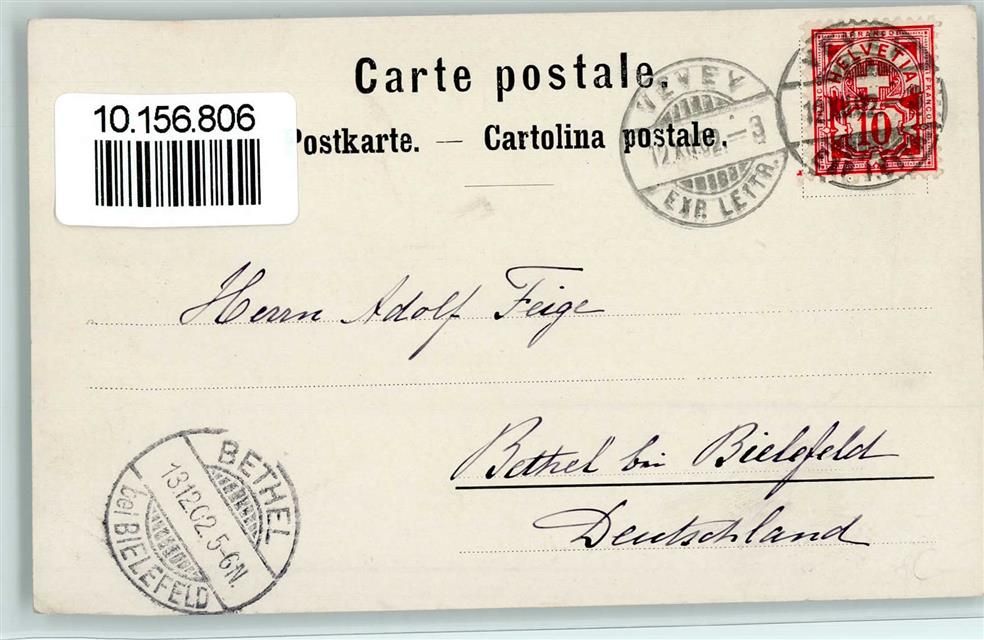 Carte postale.
10.156.806
Postkarte. — Cartolina postale.
VEVEY
12.XII.02.–3
EXP. LETTR.
FRANCO
HELVETIA
FRANCO
10
Herrn Adolf Feige
Bethel bei Bielefeld
Deutschland
BETHEL
13 12 02. 5-6N.
bei BIELEFELD